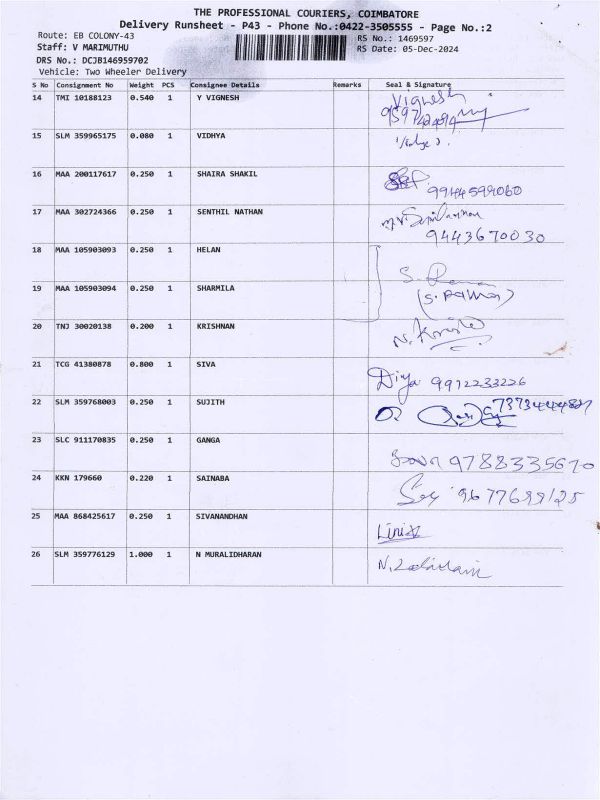 THE PROFESSIONAL COURIERS, COIMBATORE
Delivery Runsheet - P43 - Phone No.:0422-3505555 - Page No.:2
Route: EB COLONY-43
RS No.: 1469597
Staff: V MARIMUTHU
RS Date: 05-Dec-2024
DRS No.: DCJB146959702
Vehicle: Two Wheeler Delivery
S No Consignment No Weight PCS Consignee Details Remarks Seal & Signature
14 TMI 10188123 0.540 1 Y VIGNESH Vignesh
15 SLM 359965175 0.080 1 VIDHYA
16 MAA 200117617 0.250 1 SHAIRA SHAKIL 9944599060
17 MAA 302724366 0.250 1 SENTHIL NATHAN
9443670030
18 MAA 105903093 0.250 1 HELAN
19 MAA 105903094 0.250 1 SHARMILA
20 TNJ 30020138 0.200 1 KRISHNAN
21 TCG 41380878 0.800 1 SIVA Diya 9912233226
22 SLM 359768003 0.250 1 SUJITH
23 SLC 911170835 0.250 1 GANGA 9788335670
24 KKN 179660 0.220 1 SAINABA
25 MAA 868425617 0.250 1 SIVANANDHAN
26 SLM 359776129 1.000 1 N MURALIDHARAN